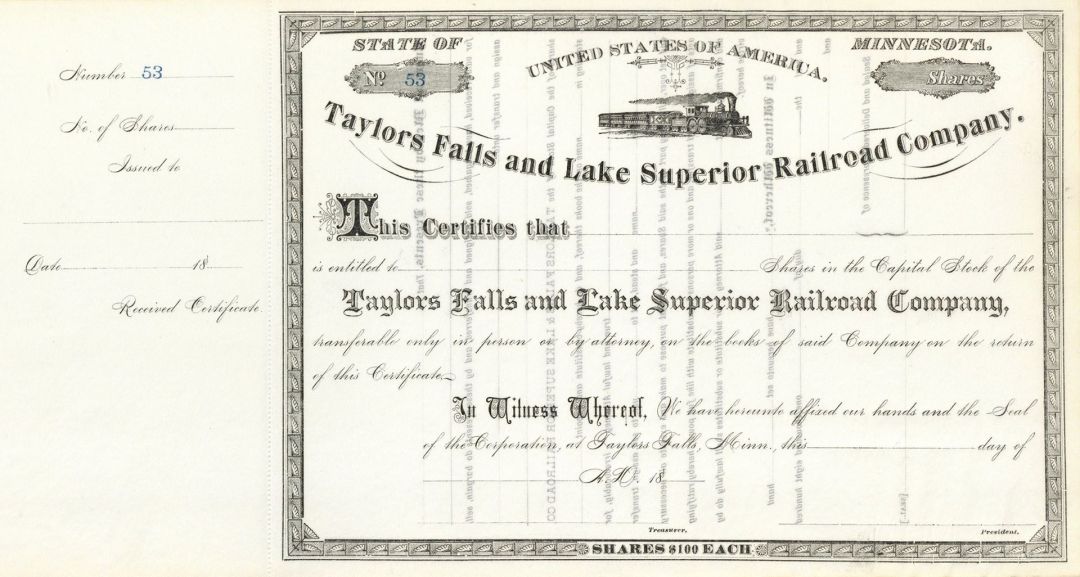 Number 53
No. of Shares
Issued to
Date 18
Received Certificate
STATE OF
UNITED STATES OF AMERICA.
MINNESOTA.
No 53
Shares
Taylors Falls and Lake Superior Railroad Company.
This Certifies that
is entitled to Shares in the Capital Stock of the
Taylors Falls and Lake Superior Railroad Company,
transferable only in person or by attorney, on the books of said Company on the return
of this Certificate.
In Witness Whereof, We have hereunto affixed our hands and the Seal
of the Corporation, at Taylors Falls, Minn., this day of
A.D. 18
Treasurer.
President.
SHARES $100 EACH